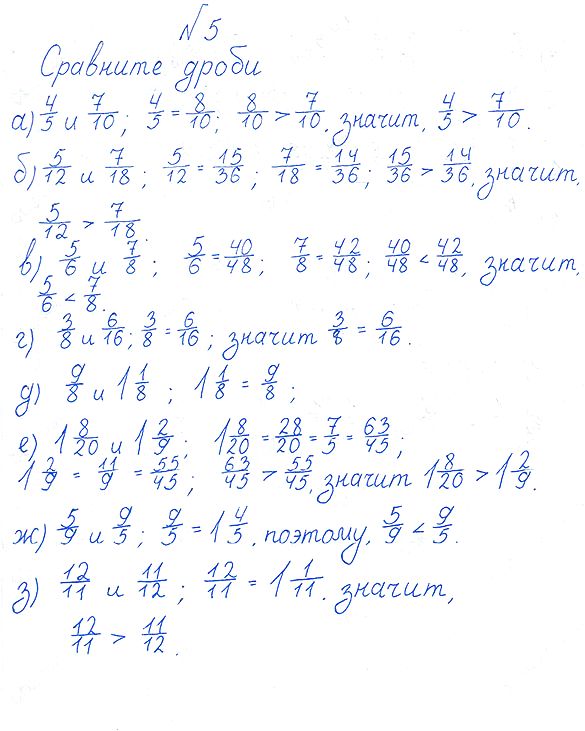 № 5
Сравните дроби
а) 4/5 и 7/10; 4/5 = 8/10; 8/10 > 7/10, значит, 4/5 > 7/10.
б) 5/12 и 7/18; 5/12 = 15/36; 7/18 = 14/36; 15/36 > 14/36, значит,
5/12 > 7/18.
в) 5/6 и 7/8; 5/6 = 40/48; 7/8 = 42/48; 40/48 < 42/48, значит,
5/6 < 7/8.
г) 3/8 и 6/16; 3/8 = 6/16; значит 3/8 = 6/16.
д) 9/8 и 1 1/8; 1 1/8 = 9/8;
е) 1 8/20 и 1 2/9; 1 8/20 = 28/20 = 7/5 = 63/45;
1 2/9 = 11/9 = 55/45; 63/45 > 55/45, значит 1 8/20 > 1 2/9.
ж) 5/9 и 9/5; 9/5 = 1 4/5, поэтому, 5/9 < 9/5.
з) 12/11 и 11/12; 12/11 = 1 1/11. значит,
12/11 > 11/12.